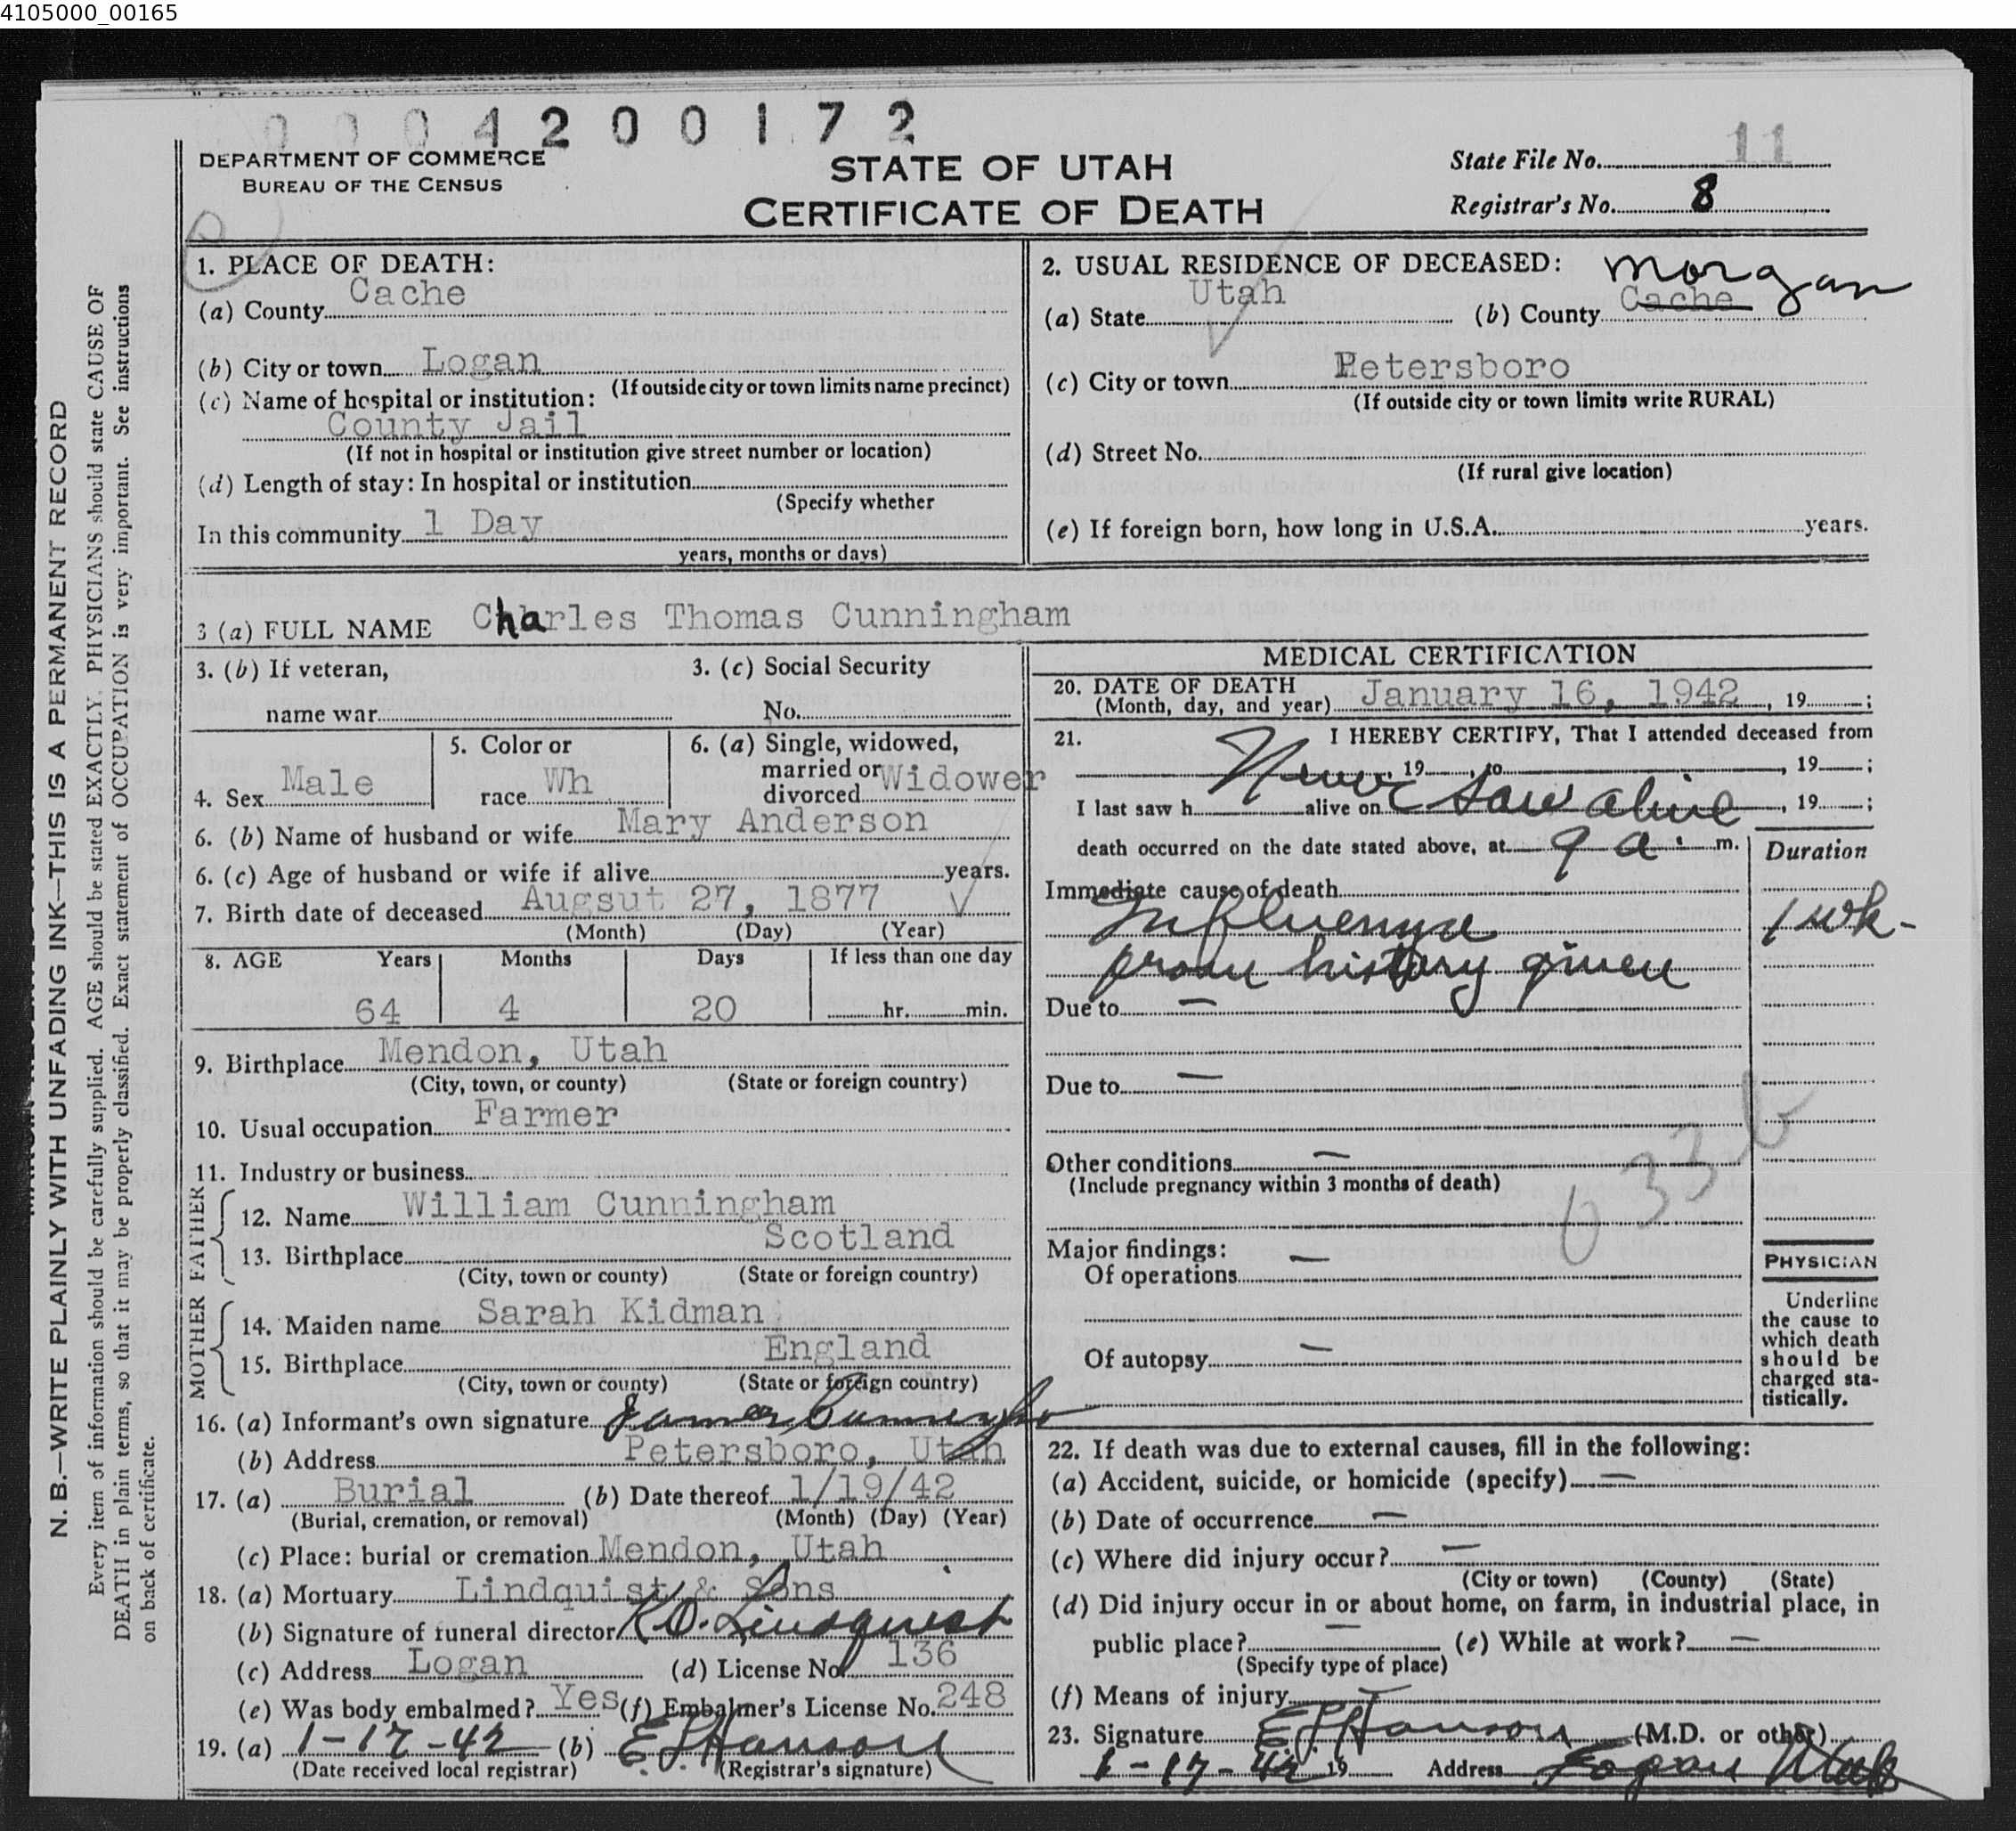 4105000_00165
0004200172
DEPARTMENT OF COMMERCE
BUREAU OF THE CENSUS
STATE OF UTAH
CERTIFICATE OF DEATH
State File No. 11
Registrar's No. 8
N. B.—WRITE PLAINLY WITH UNFADING INK—THIS IS A PERMANENT RECORD
Every item of information should be carefully supplied. AGE should be stated EXACTLY. PHYSICIANS should state CAUSE OF
DEATH in plain terms, so that it may be properly classified. Exact statement of OCCUPATION is very important. See instructions
on back of certificate.
1. PLACE OF DEATH:
(a) County Cache
(b) City or town Logan
(If outside city or town limits name precinct)
(c) Name of hospital or institution:
County Jail
(If not in hospital or institution give street number or location)
(d) Length of stay: In hospital or institution
(Specify whether
In this community 1 Day
years, months or days)
2. USUAL RESIDENCE OF DECEASED: Morgan
(a) State Utah (b) County Cache
(c) City or town Petersboro
(If outside city or town limits write RURAL)
(d) Street No.
(If rural give location)
(e) If foreign born, how long in U.S.A. years.
3 (a) FULL NAME Charles Thomas Cunningham
3. (b) If veteran, 3. (c) Social Security
name war No.
4. Sex Male
5. Color or
race Wh
6. (a) Single, widowed,
married or
divorced Widower
6. (b) Name of husband or wife Mary Anderson
6. (c) Age of husband or wife if alive years.
7. Birth date of deceased Augsut 27, 1877
(Month) (Day) (Year)
8. AGE Years Months Days If less than one day
64 4 20 hr. min.
9. Birthplace Mendon, Utah
(City, town, or county) (State or foreign country)
10. Usual occupation Farmer
11. Industry or business
FATHER
12. Name William Cunningham
13. Birthplace Scotland
(City, town or county) (State or foreign country)
MOTHER
14. Maiden name Sarah Kidman
15. Birthplace England
(City, town or county) (State or foreign country)
16. (a) Informant's own signature James Cunningham
(b) Address Petersboro, Utah
17. (a) Burial (b) Date thereof 1/19/42
(Burial, cremation, or removal) (Month) (Day) (Year)
(c) Place: burial or cremation Mendon, Utah
18. (a) Mortuary Lindquist & Sons
(b) Signature of funeral director K O. Lindquist
(c) Address Logan (d) License No. 136
(e) Was body embalmed? Yes (f) Embalmer's License No. 248
19. (a) 1-17-42 (b) E. L. Hanson
(Date received local registrar) (Registrar's signature)
MEDICAL CERTIFICATION
20. DATE OF DEATH
(Month, day, and year) January 16, 1942, 19 ;
21. I HEREBY CERTIFY, That I attended deceased from
Never , 19 , to , 19 ;
I last saw h alive on Saw alive , 19 ;
death occurred on the date stated above, at 9 a. m.
Duration
Immediate cause of death
Influenza 1 wk-
from history given
Due to —
Due to —
Other conditions —
(Include pregnancy within 3 months of death)
033b
Major findings:
Of operations —
Of autopsy —
PHYSICIAN
Underline
the cause to
which death
should be
charged sta-
tistically.
22. If death was due to external causes, fill in the following:
(a) Accident, suicide, or homicide (specify) —
(b) Date of occurrence —
(c) Where did injury occur? —
(City or town) (County) (State)
(d) Did injury occur in or about home, on farm, in industrial place, in
public place? — (e) While at work? —
(Specify type of place)
(f) Means of injury —
23. Signature E L Hanson (M.D. or other)
1-17-42 19 Address Logan Utah